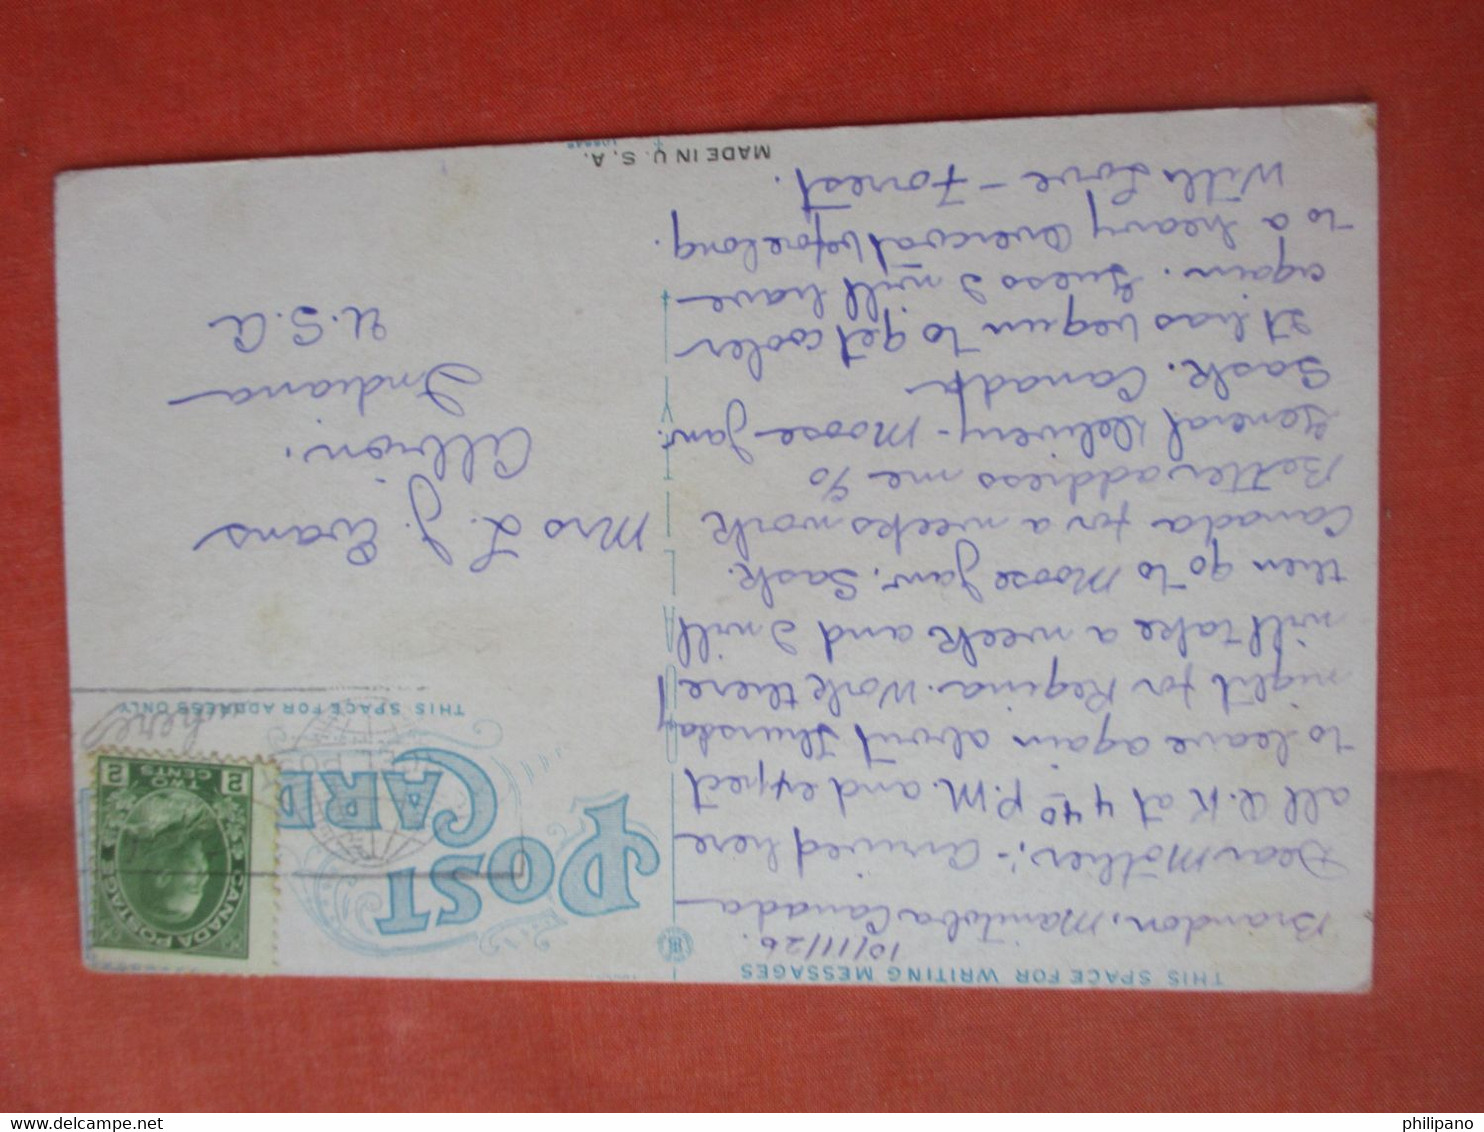 THIS SPACE FOR WRITING MESSAGES
10/11/26.
Brandon, Manitoba Canada
Dear Mother;- Arrived here
all O.K at 4 40 P.M. and expect
to leave again about Thursday
night for Regina. Work there
will take a week and I will
then go to Moose Jaw. Sask.
Canada for a weeks work
Better address me %
General Delivery - Moose Jaw.
Sask. Canada
It has begun to get cooler
again. Guess I will have
to a heavy overcoat before long.
With Love - Forest.
POST
CARD
THIS SPACE FOR ADDRESS ONLY
here
CANADA POSTAGE
2 TWO CENTS 2
Mrs L. J. Evans
Albion.
Indiana
U.S.A
MADE IN U.S.A.
delcampe.net
philipano